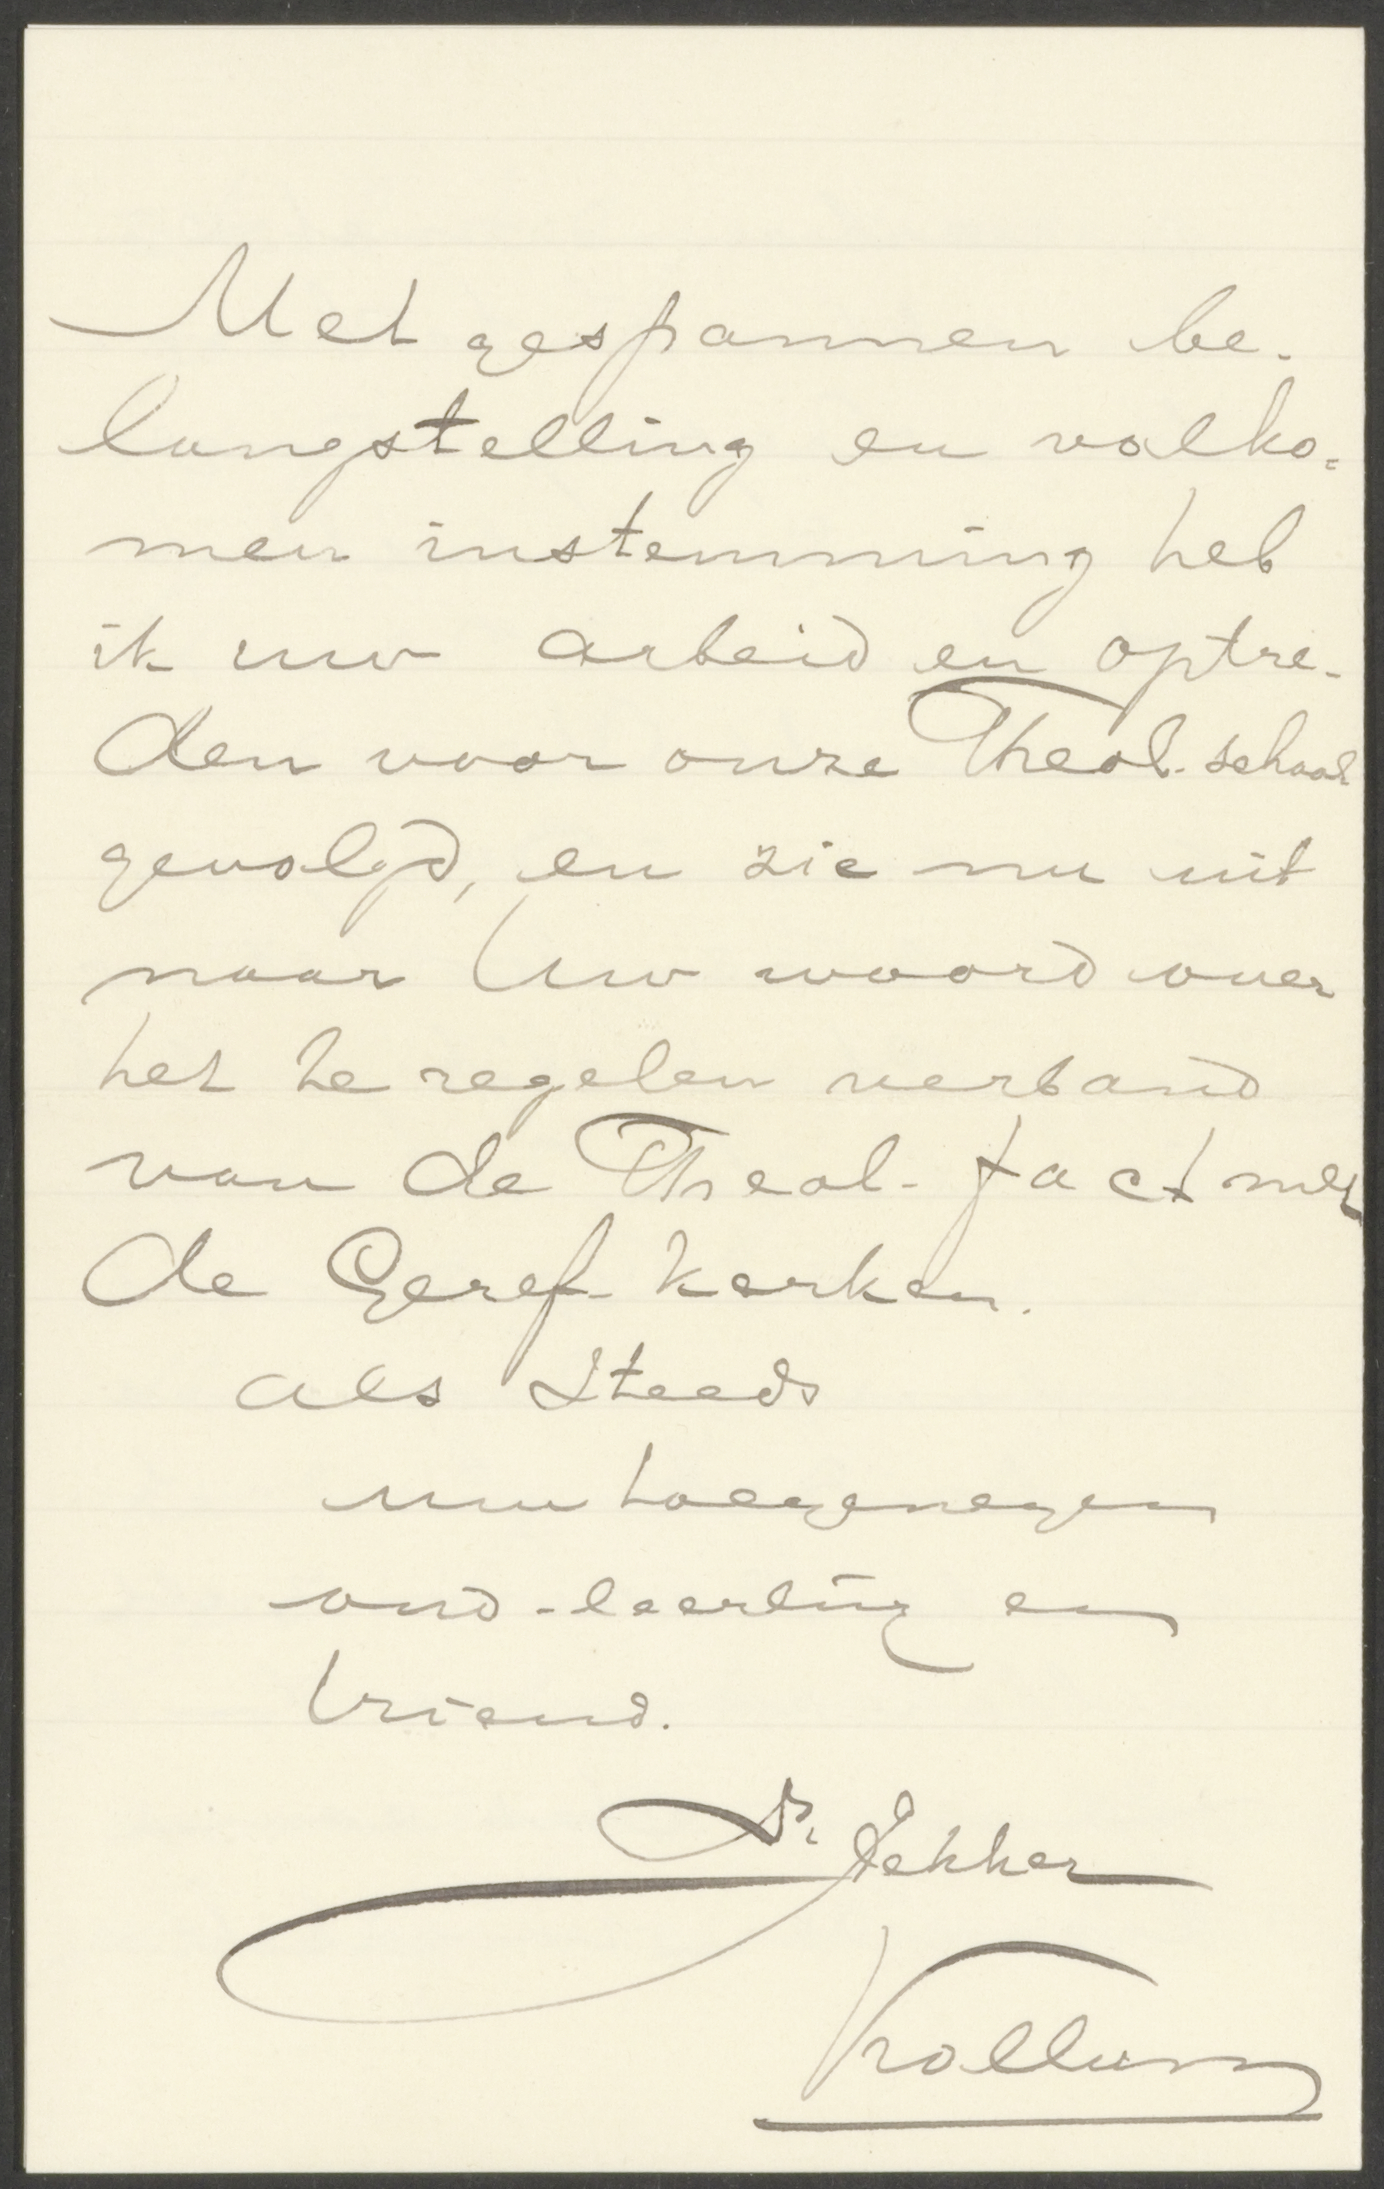 Met gespannen be-
langstelling en volko=
men instemming heb
ik uw arbeid en optre-
den voor onze Theol. school
gevolgd, en zie nu uit
naar Uw woord over
het te regelen verband
van de Theol. fact met
de Geref. kerken.
als steeds
uw toegenegen
oud-leerling en
vriend.
Dr
Kollum